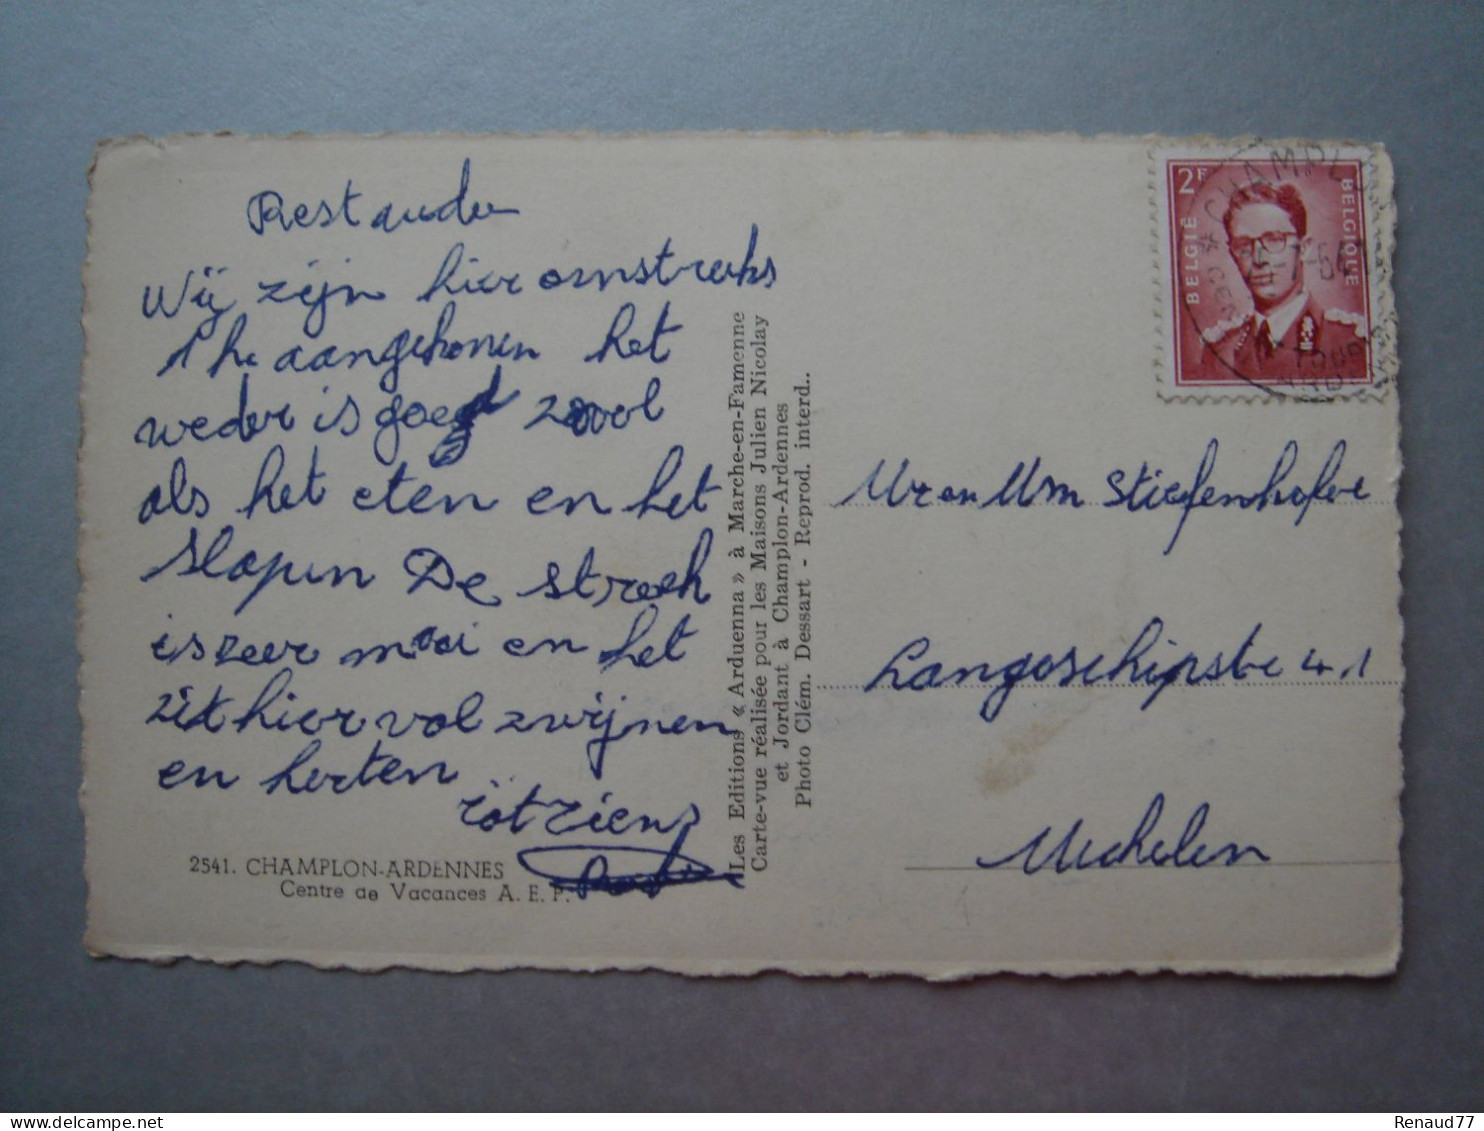 Wij zijn hier omstreeks
1 h. aangekomen het
weder is goed zoowol
als het eten en het
slapen De streek
is zeer mooi en het
zit hier vol zwijnen
en herten
2541. CHAMPLON-ARDENNES
Centre de Vacances A. E. P.
Les Editions « Arduenna » à Marche-en-Famenne
Carte-vue réalisée pour les Maisons Julien Nicolay
et Jordant à Champlon-Ardennes
Photo Clém. Dessart - Reprod. interd..
2F
BELGIË
BELGIQUE
Mr en Mm Stiefenhofer
Langeschipstr 41
Mechelen
Renaud77